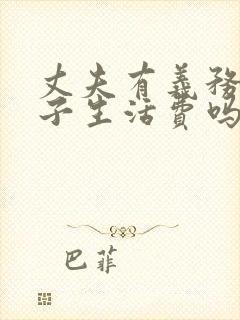 丈夫有義務
子生活費嗎
巴菲